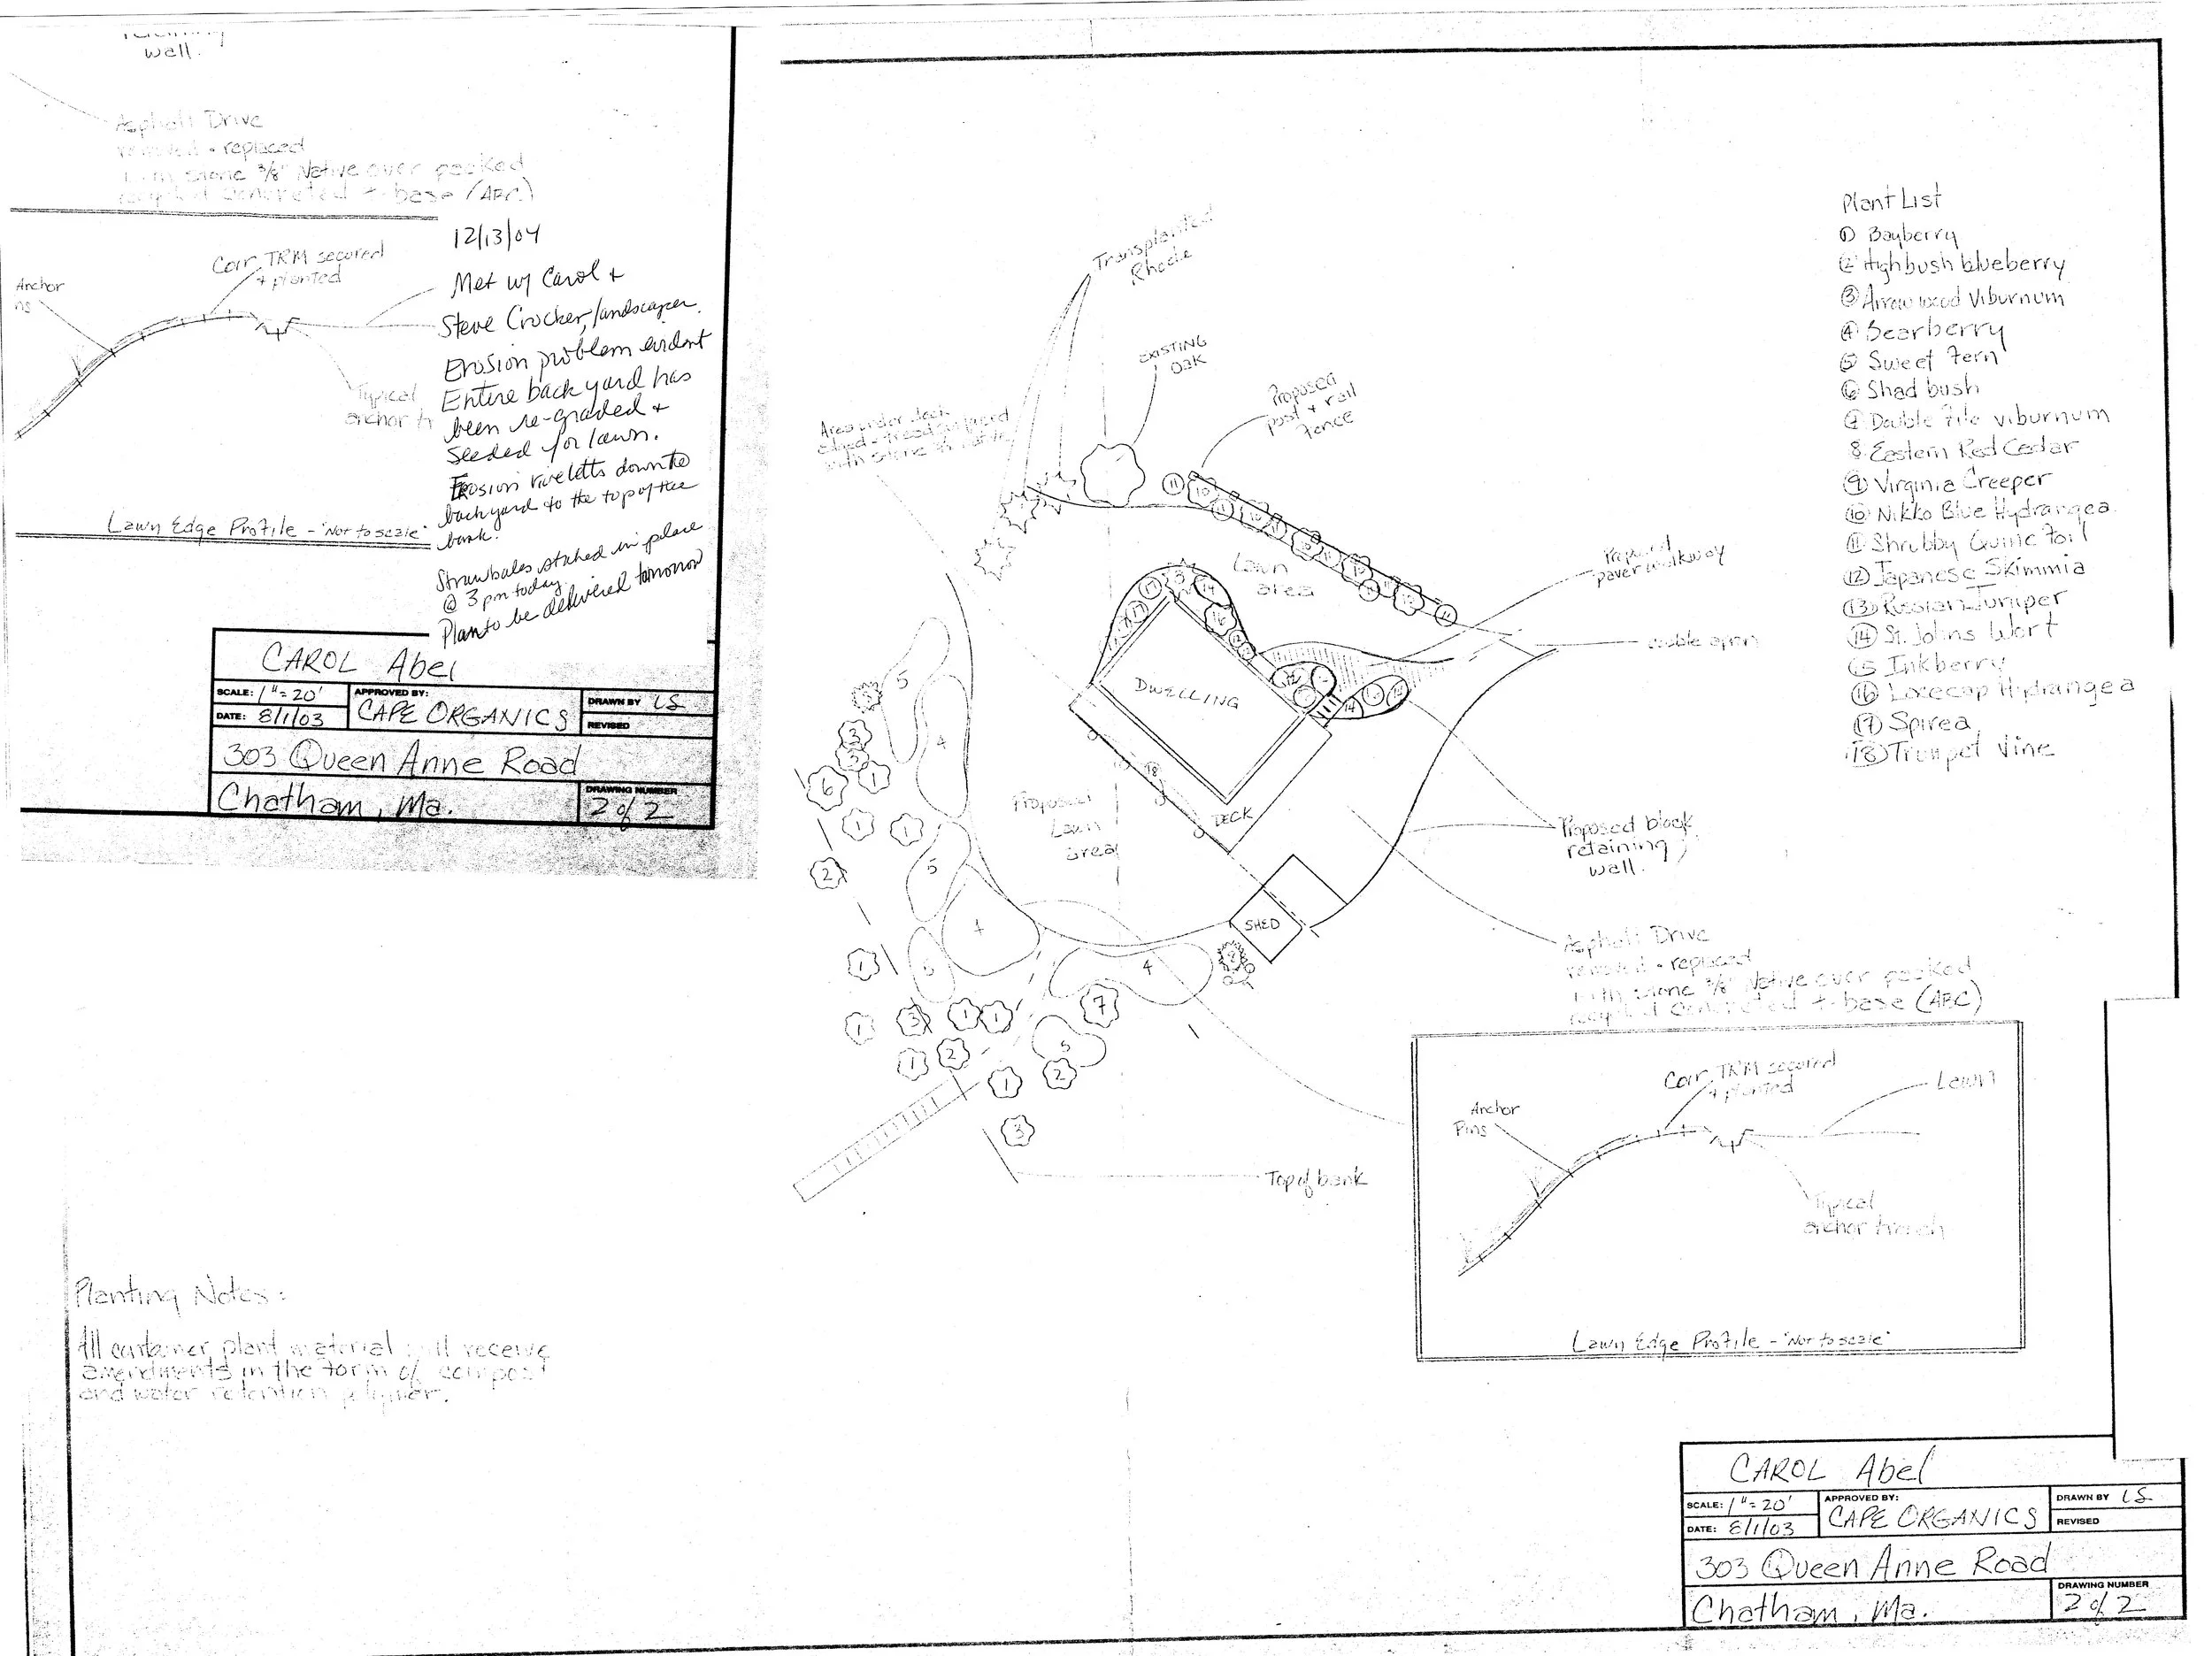 wall.
Asphalt Drive
removed + replaced
with stone 3/8" Native over packed
recycled concrete + base (ABC)
12/13/04
Met w/ Carol +
Steve Crocker, landscaper.
Erosion problem evident
Entire back yard has
been re-graded +
seeded for lawn.
Erosion riveletts down the
back yard to the top of the
bank.
Strawbales staked in place
@ 3 pm today.
Plan to be delivered tomorrow
Coir TRM secured
+ planted
Anchor
ns
Typical
anchor tr
Lawn Edge Profile - "Not to scale"
CAROL Abel
SCALE: 1" = 20'
APPROVED BY:
CAPE ORGANICS
DRAWN BY LS
DATE: 8/1/03
REVISED
303 Queen Anne Road
Chatham, Ma.
DRAWING NUMBER
2 of 2
Transplanted
Rhodie
EXISTING
OAK
Proposed
post + rail
fence
Area under deck
with stone
Lawn
area
Proposed
paver walkway
DWELLING
DECK
SHED
Proposed
Lawn
area
Proposed block
retaining
wall.
Asphalt Drive
removed + replaced
with stone 3/8" Native over packed
recycled concrete + base (ABC)
Top of bank
Plant List
1 Bayberry
2 Highbush blueberry
3 Arrowwood Viburnum
4 Bearberry
5 Sweet Fern
6 Shad bush
7 Double File viburnum
8 Eastern Red Cedar
9 Virginia Creeper
10 Nikko Blue Hydrangea
11 Shrubby Quinc Foil
12 Japanese Skimmia
13 Russian Juniper
14 St. Johns Wort
15 Inkberry
16 Lacecap Hydrangea
17 Spirea
18 Trumpet Vine
Coir TRM secured
+ planted
Lawn
Anchor
Pins
Typical
anchor trench
Lawn Edge Profile - "Not to scale"
Planting Notes:
All container plant material will receive
amendments in the form of compost
and water retention polymer.
CAROL Abel
SCALE: 1" = 20'
APPROVED BY:
CAPE ORGANICS
DRAWN BY LS
DATE: 8/1/03
REVISED
303 Queen Anne Road
Chatham, Ma.
DRAWING NUMBER
2 of 2